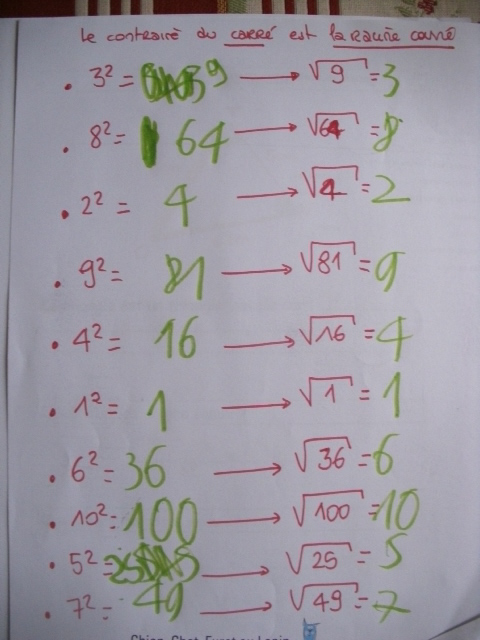 Le contraire du carré est la racine carré
• 3² = 9 → √9 = 3
• 8² = 64 → √64 = 8
• 2² = 4 → √4 = 2
• 9² = 81 → √81 = 9
• 4² = 16 → √16 = 4
• 1² = 1 → √1 = 1
• 6² = 36 → √36 = 6
• 10² = 100 → √100 = 10
• 5² = 25 → √25 = 5
• 7² = 49 → √49 = 7
Chien, Chat, Furet ou Lapin